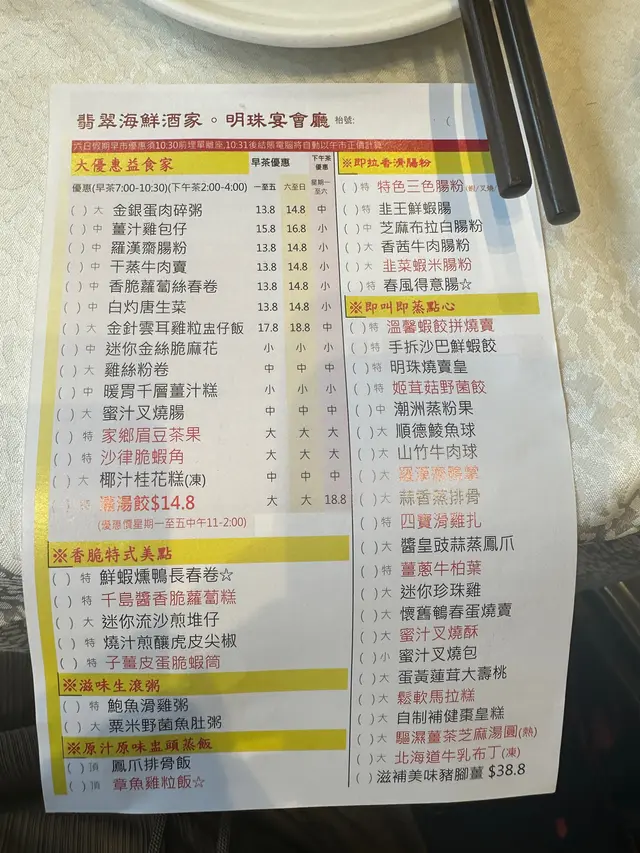 翡翠海鮮酒家。明珠宴會廳 枱號:
六日假期早市優惠須10:30前埋單離座,10:31後結賬電腦將自動以午市正價計算
大優惠益食家 早茶優惠 下午茶優惠
優惠(早茶7:00-10:30)(下午茶2:00-4:00) 一至五 六至日 星期一至六
( ) 大 金銀蛋肉碎粥 13.8 14.8 中
( ) 中 薑汁雞包仔 15.8 16.8 小
( ) 中 羅漢齋腸粉 13.8 14.8 小
( ) 中 干蒸牛肉賣 13.8 14.8 小
( ) 中 香脆蘿蔔絲春卷 13.8 14.8 小
( ) 中 白灼唐生菜 13.8 14.8 小
( ) 大 金針雲耳雞粒盅仔飯 17.8 18.8 中
( ) 中 迷你金絲脆麻花 小 小 小
( ) 大 雞絲粉卷 中 中 中
( ) 中 暖胃千層薑汁糕 小 小 小
( ) 大 蜜汁叉燒腸 中 中 中
( ) 特 家鄉眉豆茶果 大 大 大
( ) 特 沙律脆蝦角 大 大 大
( ) 大 椰汁桂花糕(凍) 中 中 中
( ) 特 灌湯餃$14.8 大 大 18.8
(優惠價星期一至五中午11-2:00)
※香脆特式美點
( ) 特 鮮蝦燻鴨長春卷☆
( ) 特 千島醬香脆蘿蔔糕
( ) 大 迷你流沙煎堆仔
( ) 特 燒汁煎釀虎皮尖椒
( ) 特 子薑皮蛋脆蝦筒
※滋味生滾粥
( ) 特 鮑魚滑雞粥
( ) 大 粟米野菌魚肚粥
※原汁原味盅頭蒸飯
( ) 頂 鳳爪排骨飯
( ) 頂 章魚雞粒飯☆
※即拉香滑腸粉
( ) 特 特色三色腸粉
( ) 特 韭王鮮蝦腸
( ) 中 芝麻布拉白腸粉
( ) 大 香茜牛肉腸粉
( ) 大 韭菜蝦米腸粉
( ) 特 春風得意腸☆
※即叫即蒸點心
( ) 特 溫馨蝦餃拼燒賣
( ) 特 手拆沙巴鮮蝦餃
( ) 特 明珠燒賣皇
( ) 特 姬茸菇野菌餃
( ) 中 潮洲蒸粉果
( ) 大 順德鯪魚球
( ) 大 山竹牛肉球
( ) 大
( ) 大 蒜香蒸排骨
( ) 特 四寶滑雞扎
( ) 大 醬皇豉蒜蒸鳳爪
( ) 特 薑蔥牛柏葉
( ) 大 迷你珍珠雞
( ) 大 懷舊鵪春蛋燒賣
( ) 大 蜜汁叉燒酥
( ) 小 蜜汁叉燒包
( ) 大 蛋黃蓮茸大壽桃
( ) 大 鬆軟馬拉糕
( ) 大 自制補健棗皇糕
( ) 大 驅濕薑茶芝麻湯圓(熱)
( ) 大 北海道牛乳布丁(凍)
( ) 滋補美味豬腳薑 $38.8